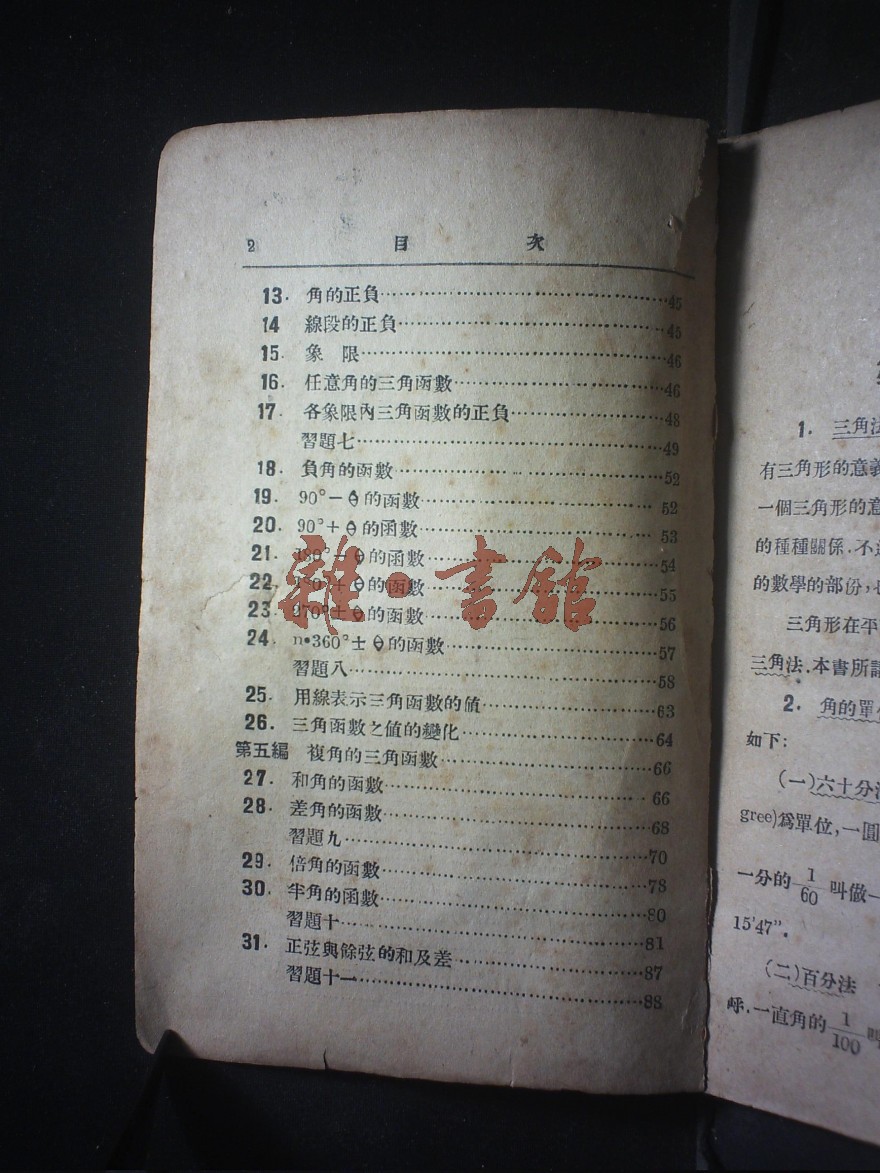 2 目 次
13. 角的正負 45
14 線段的正負 45
15. 象 限 46
16. 任意角的三角函數 46
17. 各象限內三角函數的正負 48
習題七 49
18. 負角的函數 52
19. 90°－θ的函數 52
20. 90°＋θ的函數 53
21. 180°－θ的函數 54
22. 180°＋θ的函數 55
23. 270°±θ的函數 56
24. n•360°±θ的函數 57
習題八 58
25. 用線表示三角函數的値 63
26. 三角函數之值的變化 64
第五編 複角的三角函數 66
27. 和角的函數 66
28. 差角的函數 68
習題九 70
29. 倍角的函數 78
30. 半角的函數 80
習題十 81
31. 正弦與餘弦的和及差 87
習題十一 88
雜·書館
1. 三角法
有三角形的意義
一個三角形的意
的種種關係.不
的數學的部份,
三角形在平
三角法.本書所講
2. 角的單
如下:
(一)六十分法
gree)爲單位,一圓
一分的 1/60 叫做
15'47".
(二)百分法
呼.一直角的 1/100